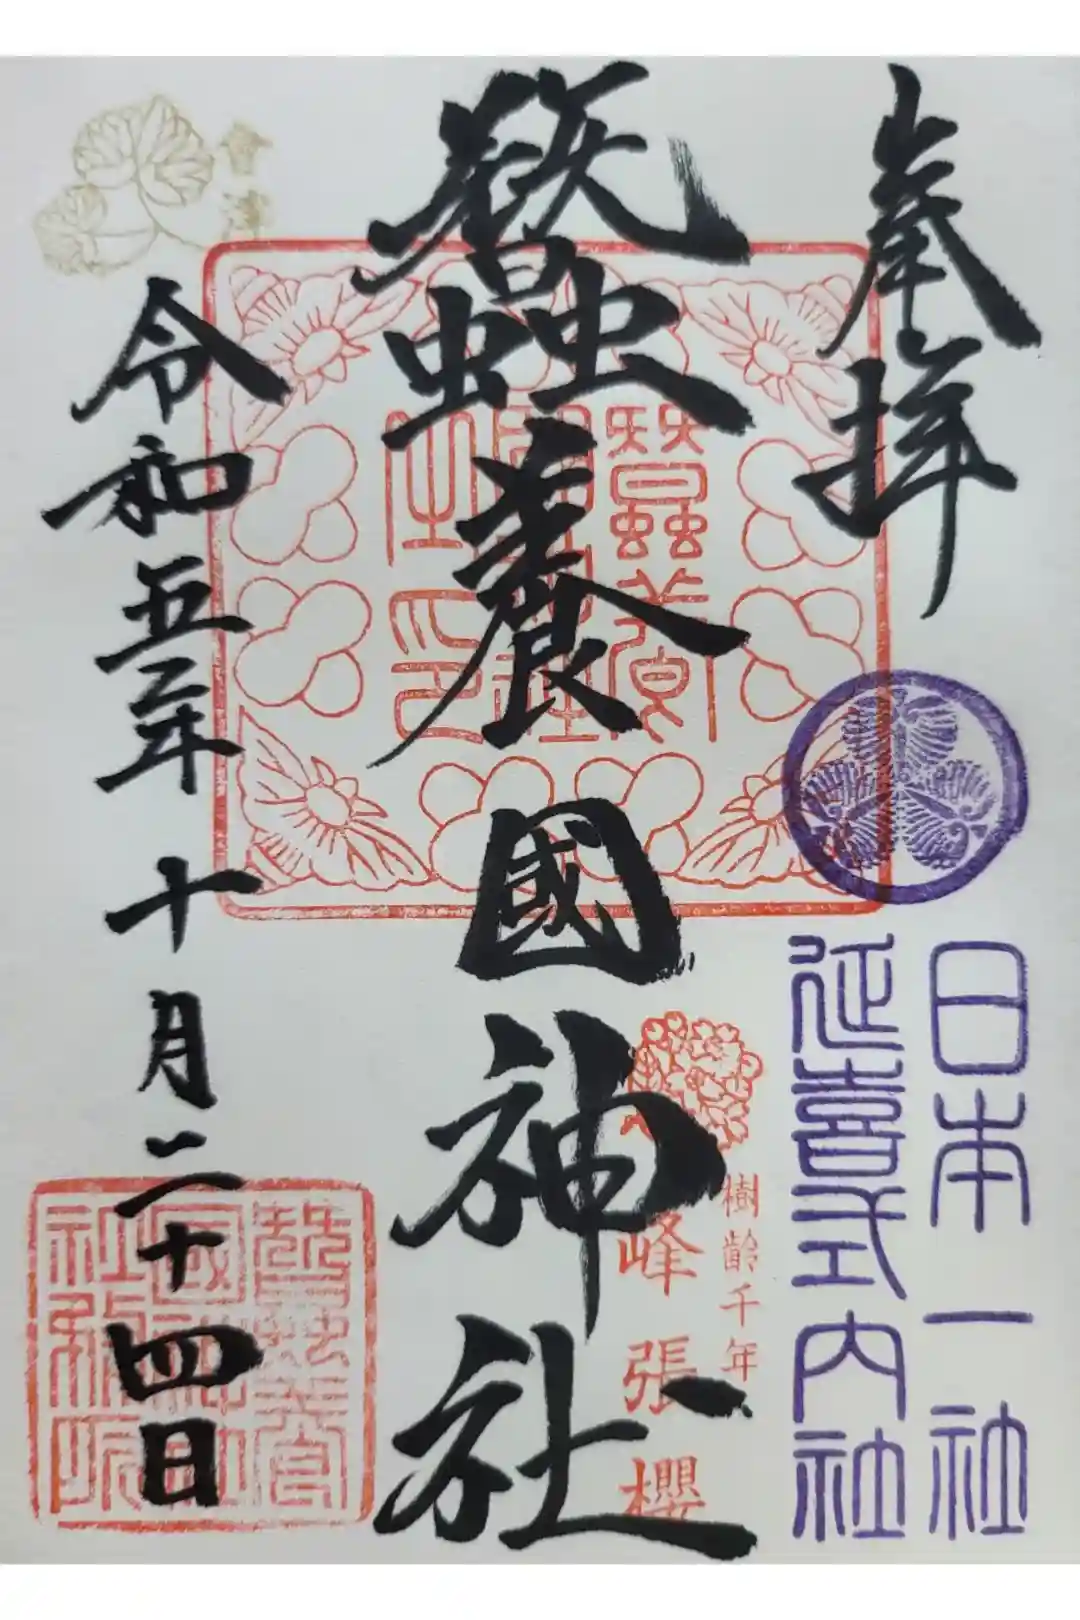 奉拝
日本一社
延喜式内社
樹齢千年
峰張櫻
蠶養國神社
蠶養國神社之印
令和五年十月二十四日
會津